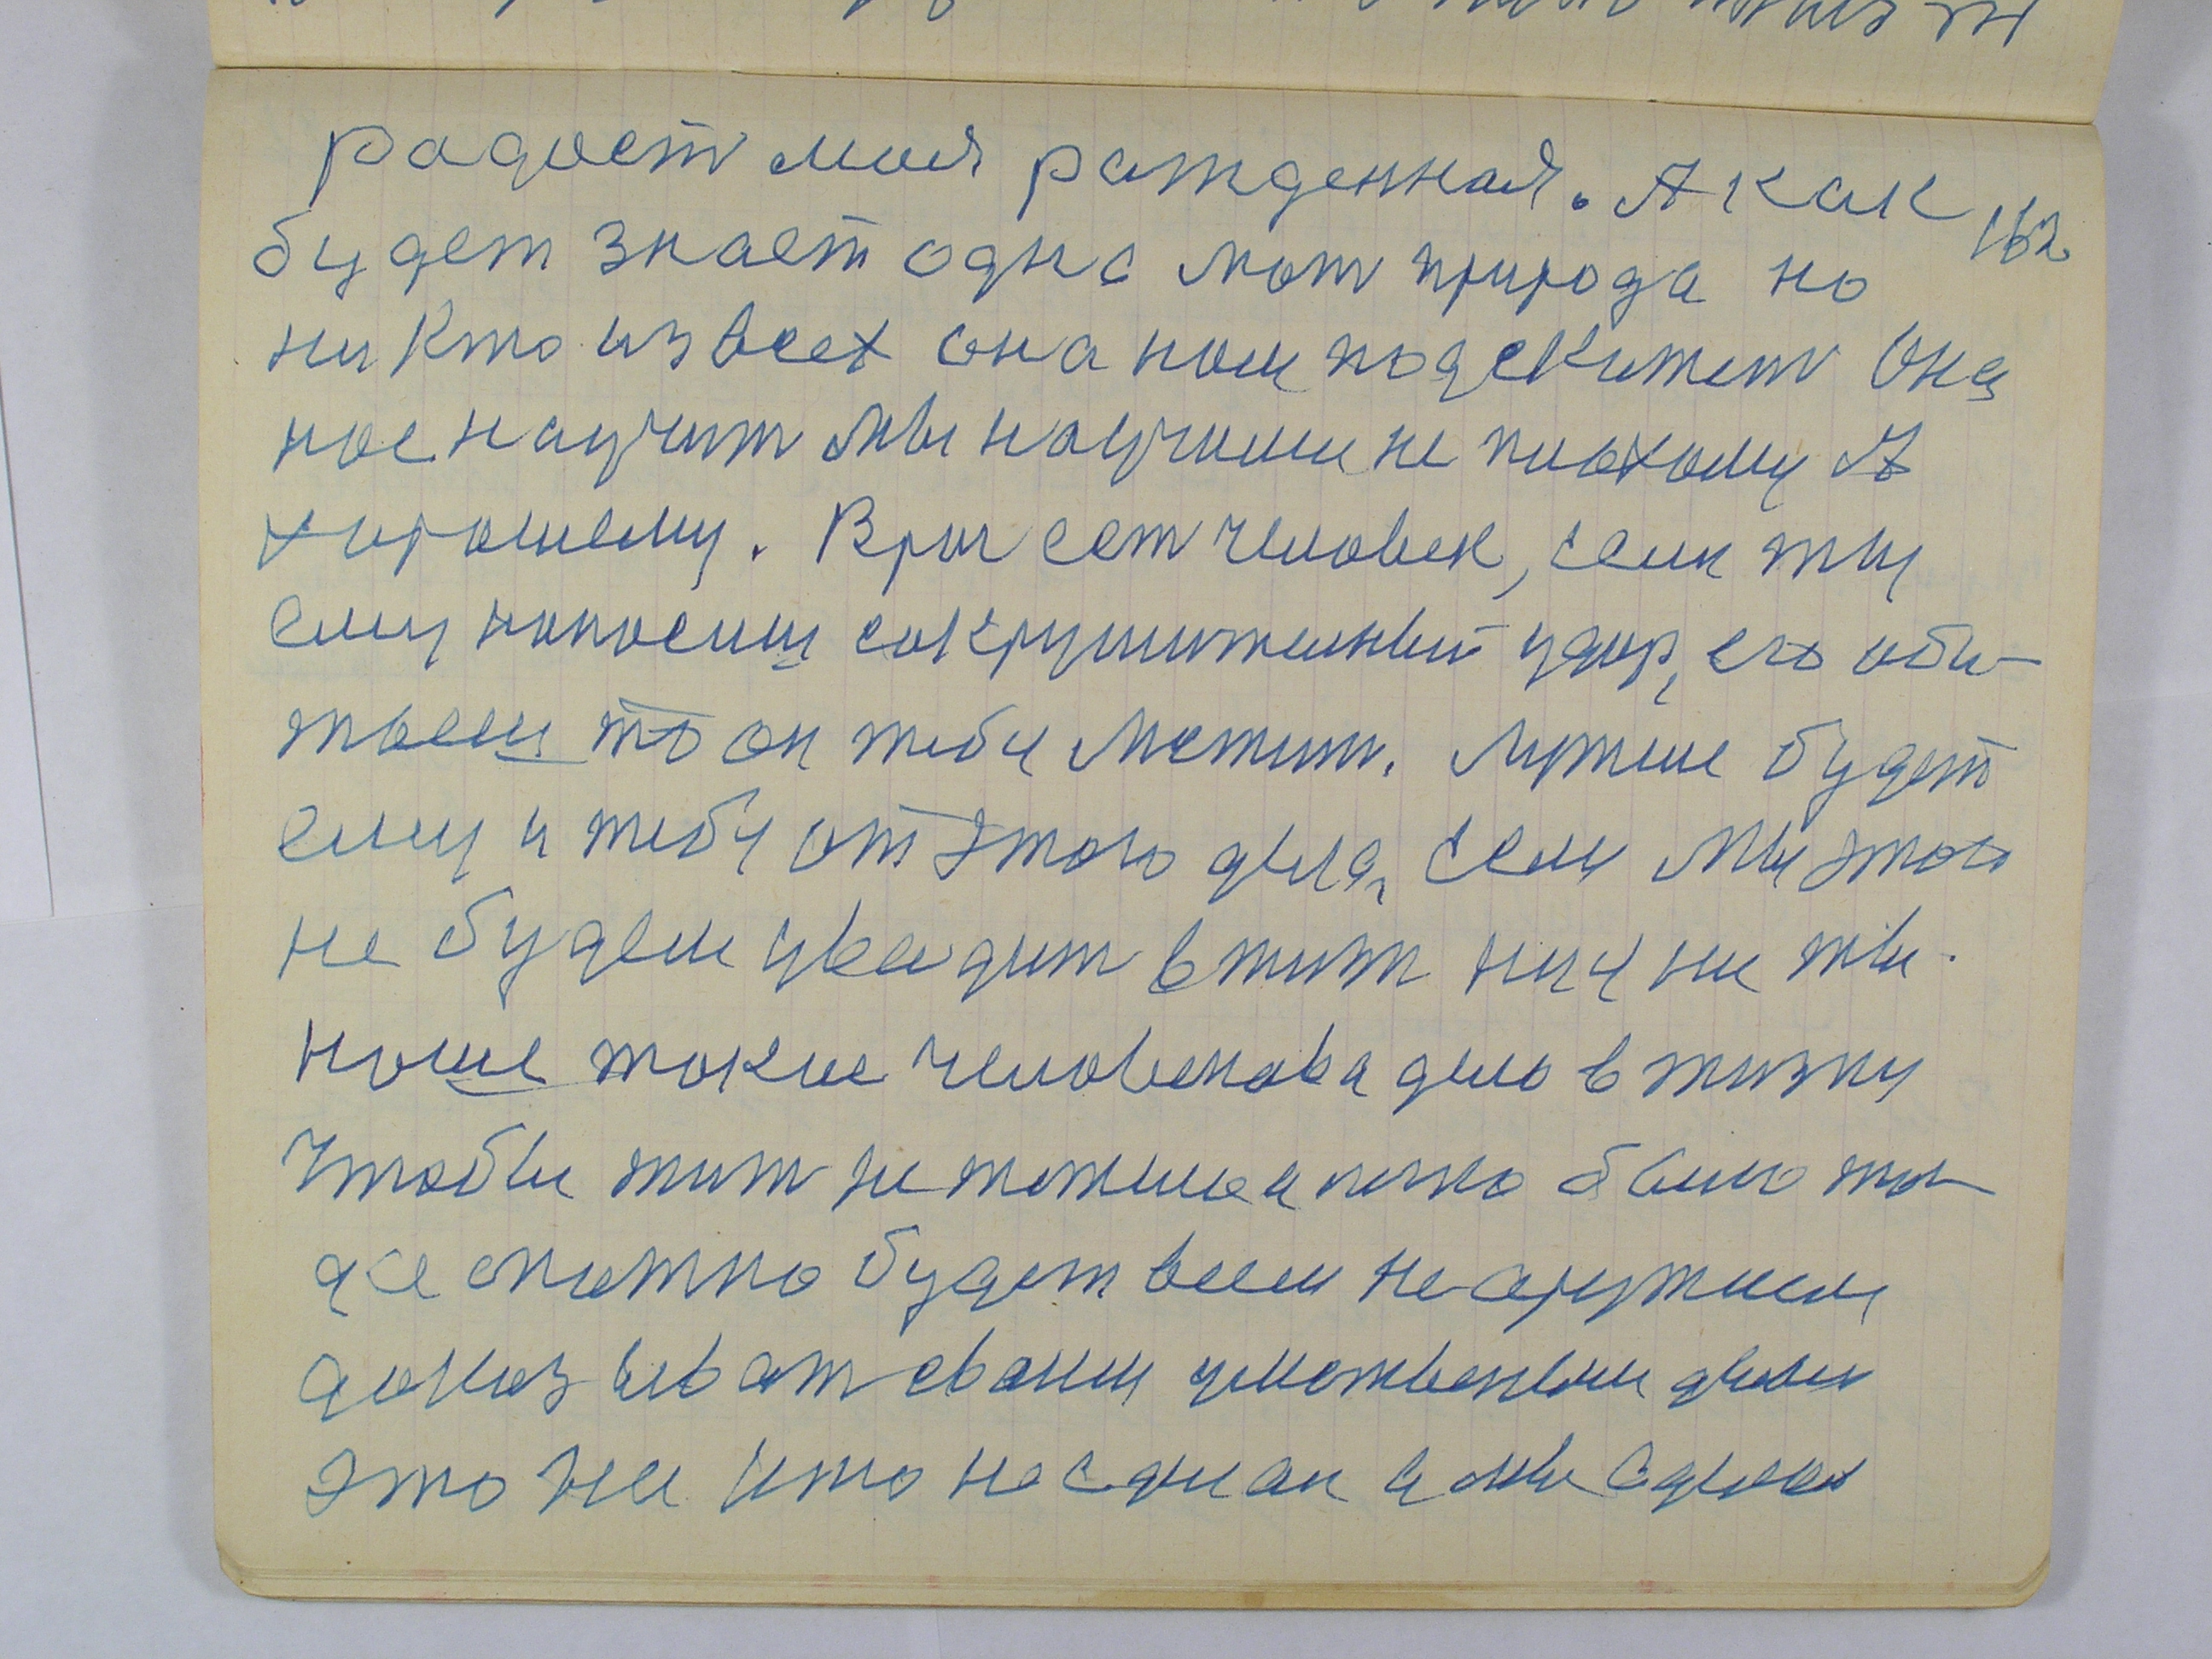 радост моя рожденная. А как
162
будет знает одна мат природа но
ни кто из всех она нам подскажет Она
нас научит мы научими не плохому А
хорошему. Враг ест человек, если ты
ему наносиш сокрушительный удар, его оби-
жаеш то он тебе мстит. Лутше будет
ему и тебе от этого дела, если мы этого
не будем уваждит в жизни
наше такие человекова дело в жизни
чтобы жит не тяжело а легко было то-
где спитно будет всем не оружием
доказыват своими умственными делом
это не кто не сделал а мы сделаем